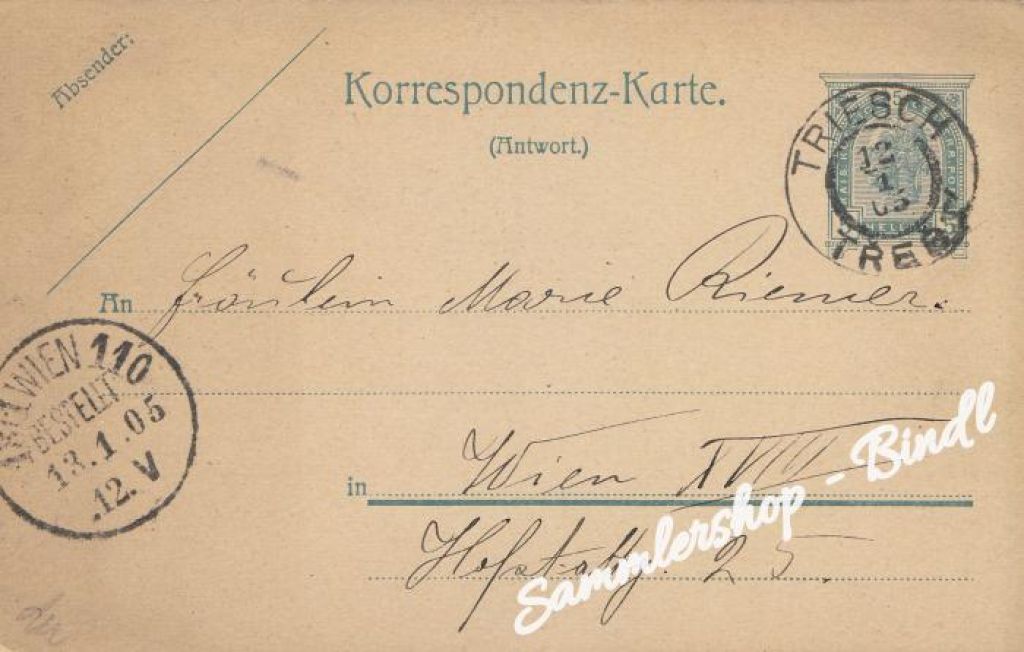 Absender:
Korrespondenz-Karte.
(Antwort.)
TRIESCH
12
1
05
TREŠŤ
An Fräulein Marie Riemer.
WIEN 110
BESTELLT
13.1.05
.12.V
in Wien XVIII
25.
Sammlershop - Bindl